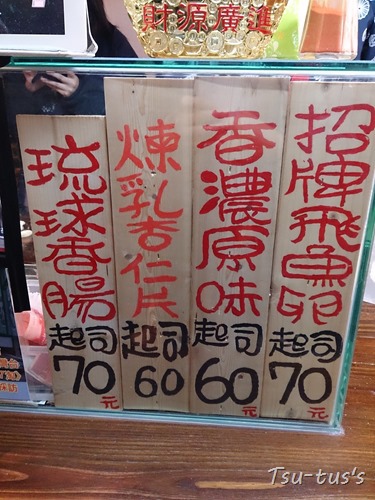 財源廣進
招牌飛魚卵
起司
70元
香濃原味
起司
60元
煉乳杏仁片
起司
60
琉球香腸
起司
70元
Tsu-tus's